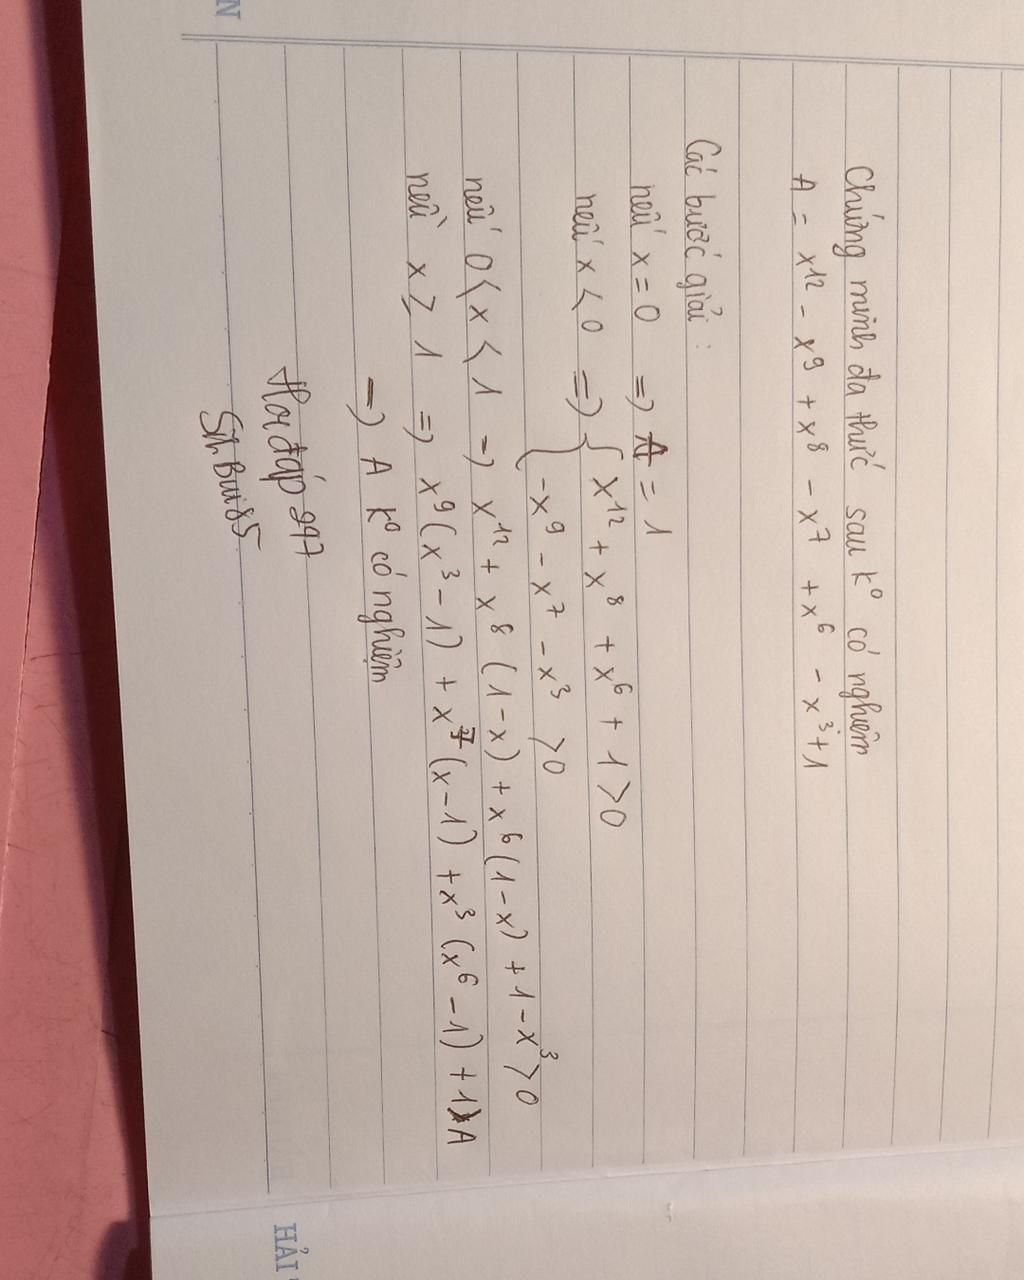 Chứng minh đa thức sau k⁰ có nghiệm
A = x¹² - x⁹ + x⁸ - x⁷ + x⁶ - x³ + 1
Các bước giải :
nếu x = 0 => A = 1
nếu x < 0 => { x¹² + x⁸ + x⁶ + 1 > 0
{ -x⁹ - x⁷ - x³ > 0
nếu 0 < x < 1 -) x¹² + x⁸ (1-x) + x⁶ (1-x) + 1 - x³ > 0
nếu x ≥ 1 => x⁹ (x³ - 1) + x⁷ (x-1) + x³ (x⁶ - 1) + 1 > A
-) A k⁰ có nghiệm
Hoi đáp 297
Bui85
N
HẢI